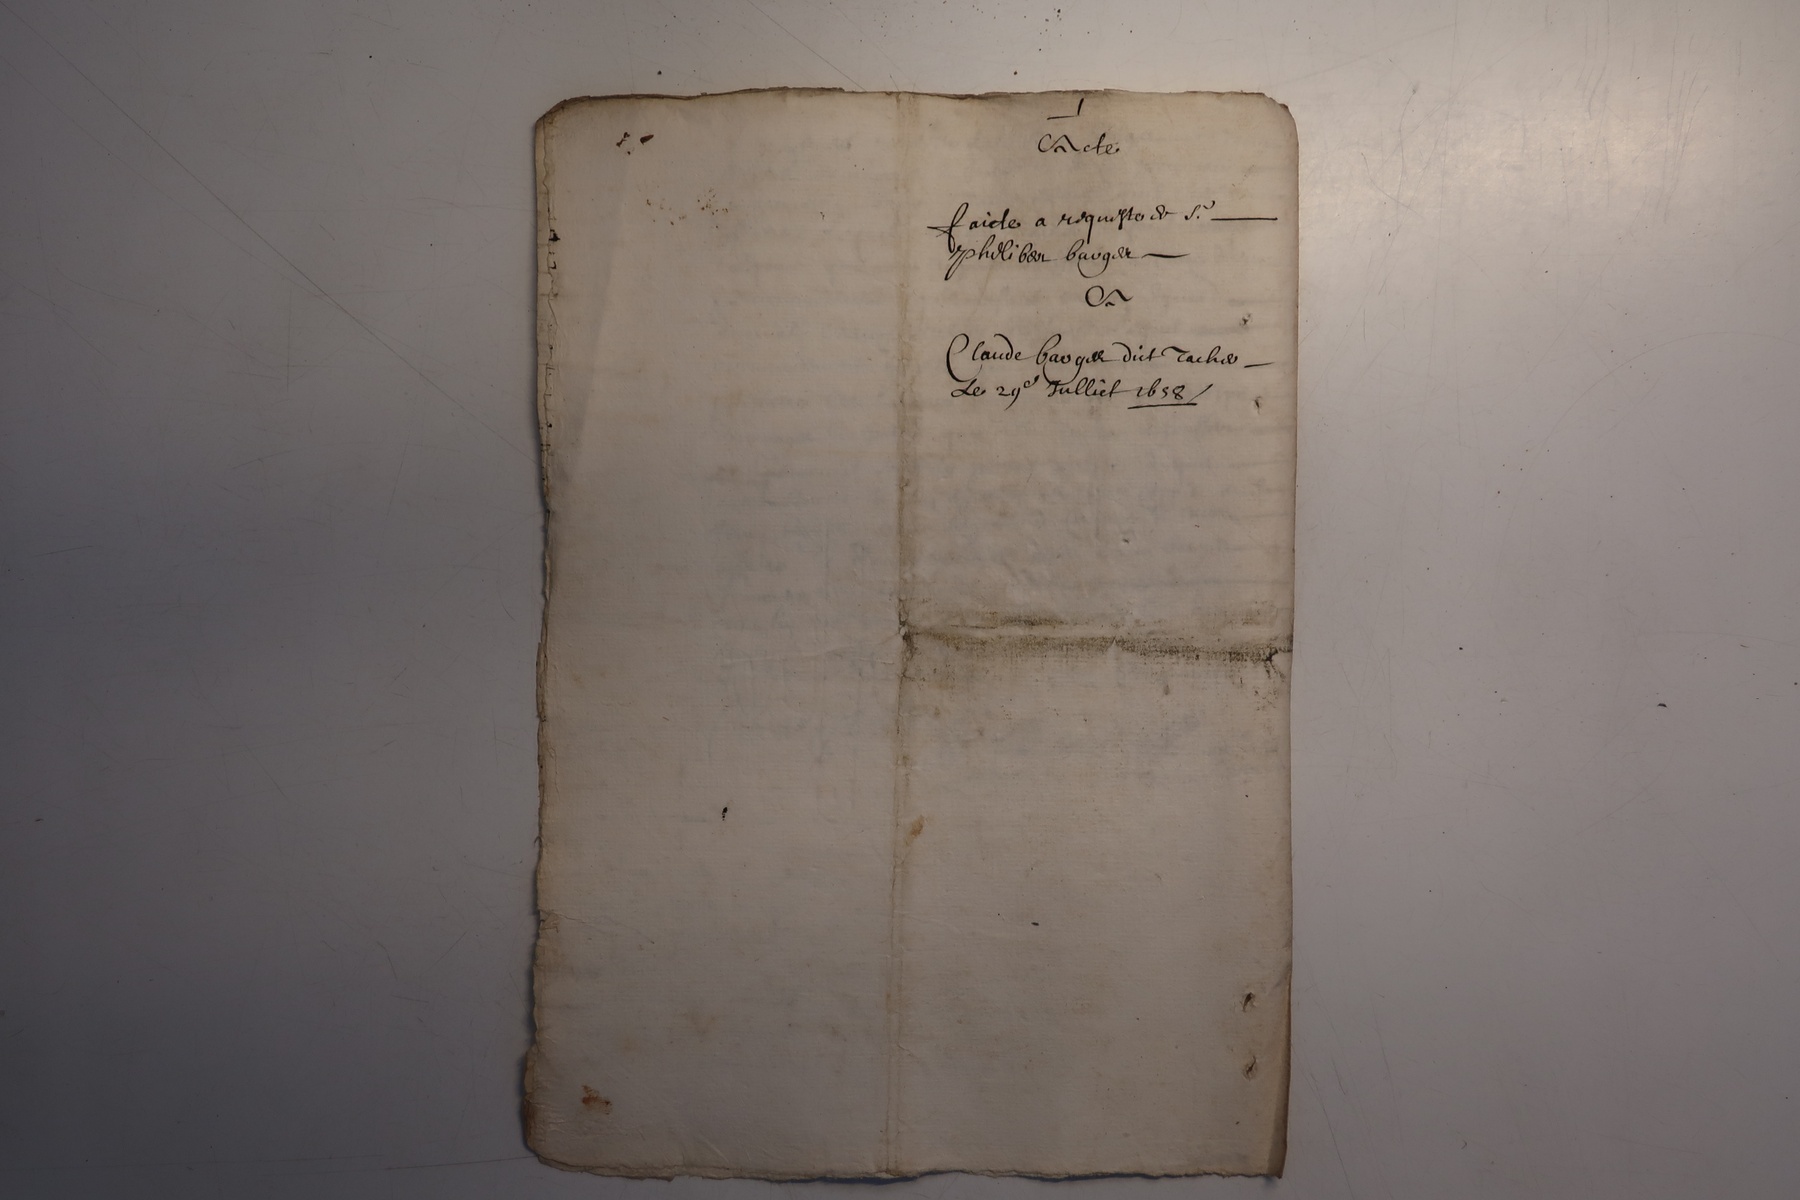 1
Acte
faicte a requeste de Sr
Philiber bauger
A
Claude bauger dict
Le 29e Julliet 1658